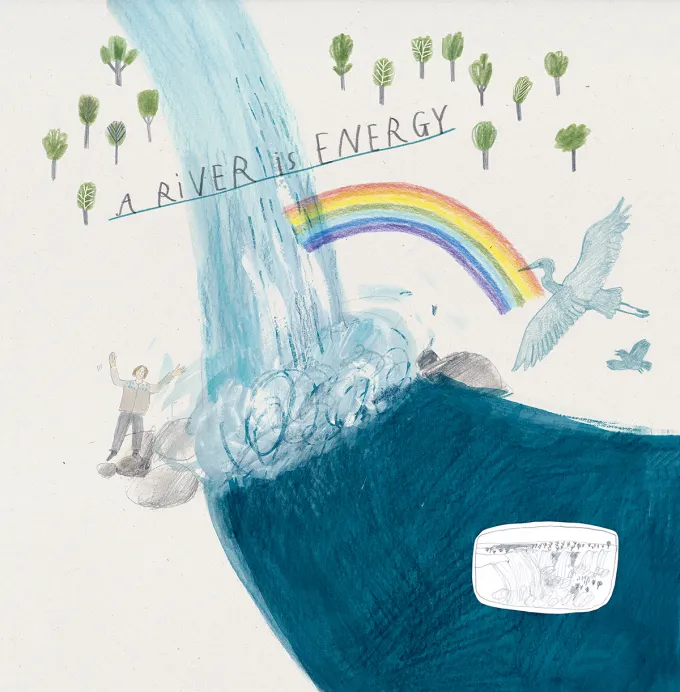 A RiVER is ENERGY